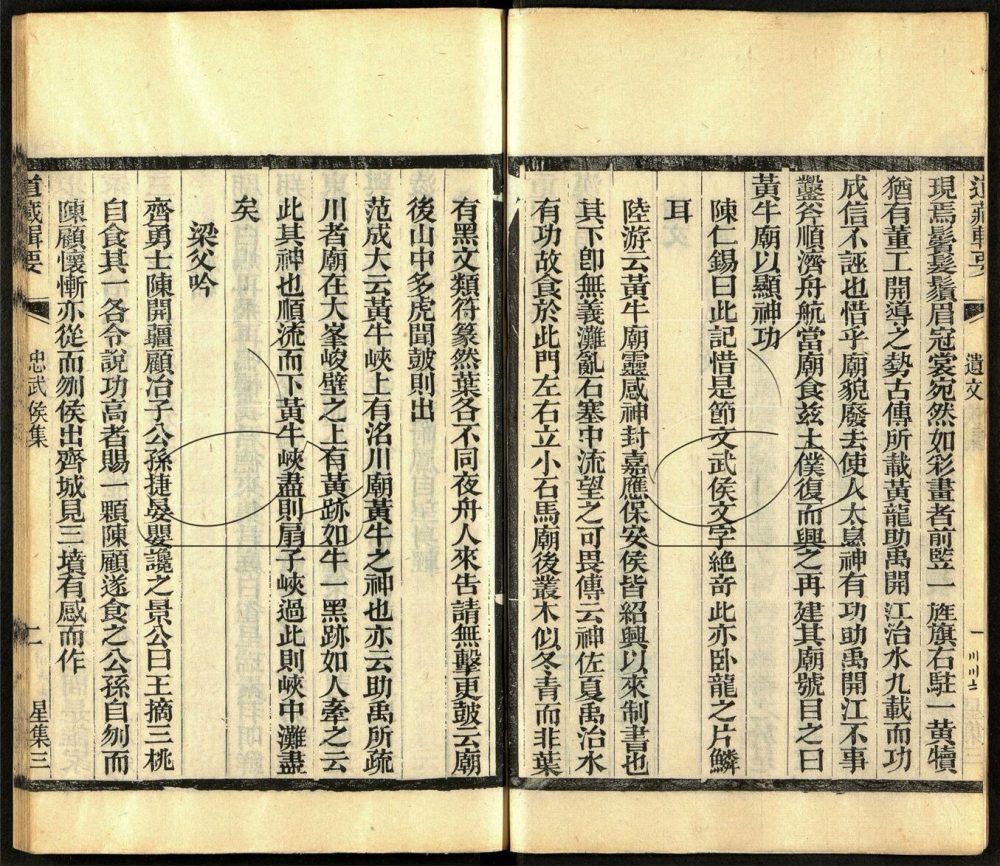 道藏輯要
遺文
一
現焉鬚髮鬢眉冠裳宛然如彩畫者前竪一旌旗右駐一黃犢
猶有董工開導之勢古傳所載黃龍助禹開江治水九載而功
成信不誣也惜乎廟貌廢去使人太息神有功助禹開江不事
鑿斧順濟舟航當廟食兹土僕復而興之再建其廟號目之曰
黃牛廟以顯神功
陳仁錫曰此記惜是節文武侯文字絶奇此亦卧龍之片鱗
耳
陸游云黃牛廟靈感神封嘉應保安侯皆紹興以來制書也
其下卽無義灘亂石塞中流望之可畏傳云神佐夏禹治水
有功故食於此門左右立小石馬廟後叢木似冬青而非葉
有黑文類符篆然葉各不同夜舟人來告請無擊更鼓云廟
後山中多虎聞鼓則出
范成大云黃牛峽上有洺川廟黃牛之神也亦云助禹所疏
川者廟在大峯峻壁之上有黃跡如牛一黑跡如人牽之云
此其神也順流而下黃牛峽盡則扇子峽過此則峽中灘盡
矣
梁父吟
齊勇士陳開疆顧冶子公孫捷晏嬰讒之景公曰王摘三桃
自食其一各令說功高者賜一顆陳顧遂食之公孫自刎而
陳顧懷慚亦從而刎侯出齊城見三墳有感而作
道藏輯要
忠武侯集
二
星集三